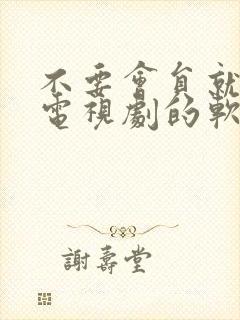 不要會員就
電視劇的軟
謝壽堂